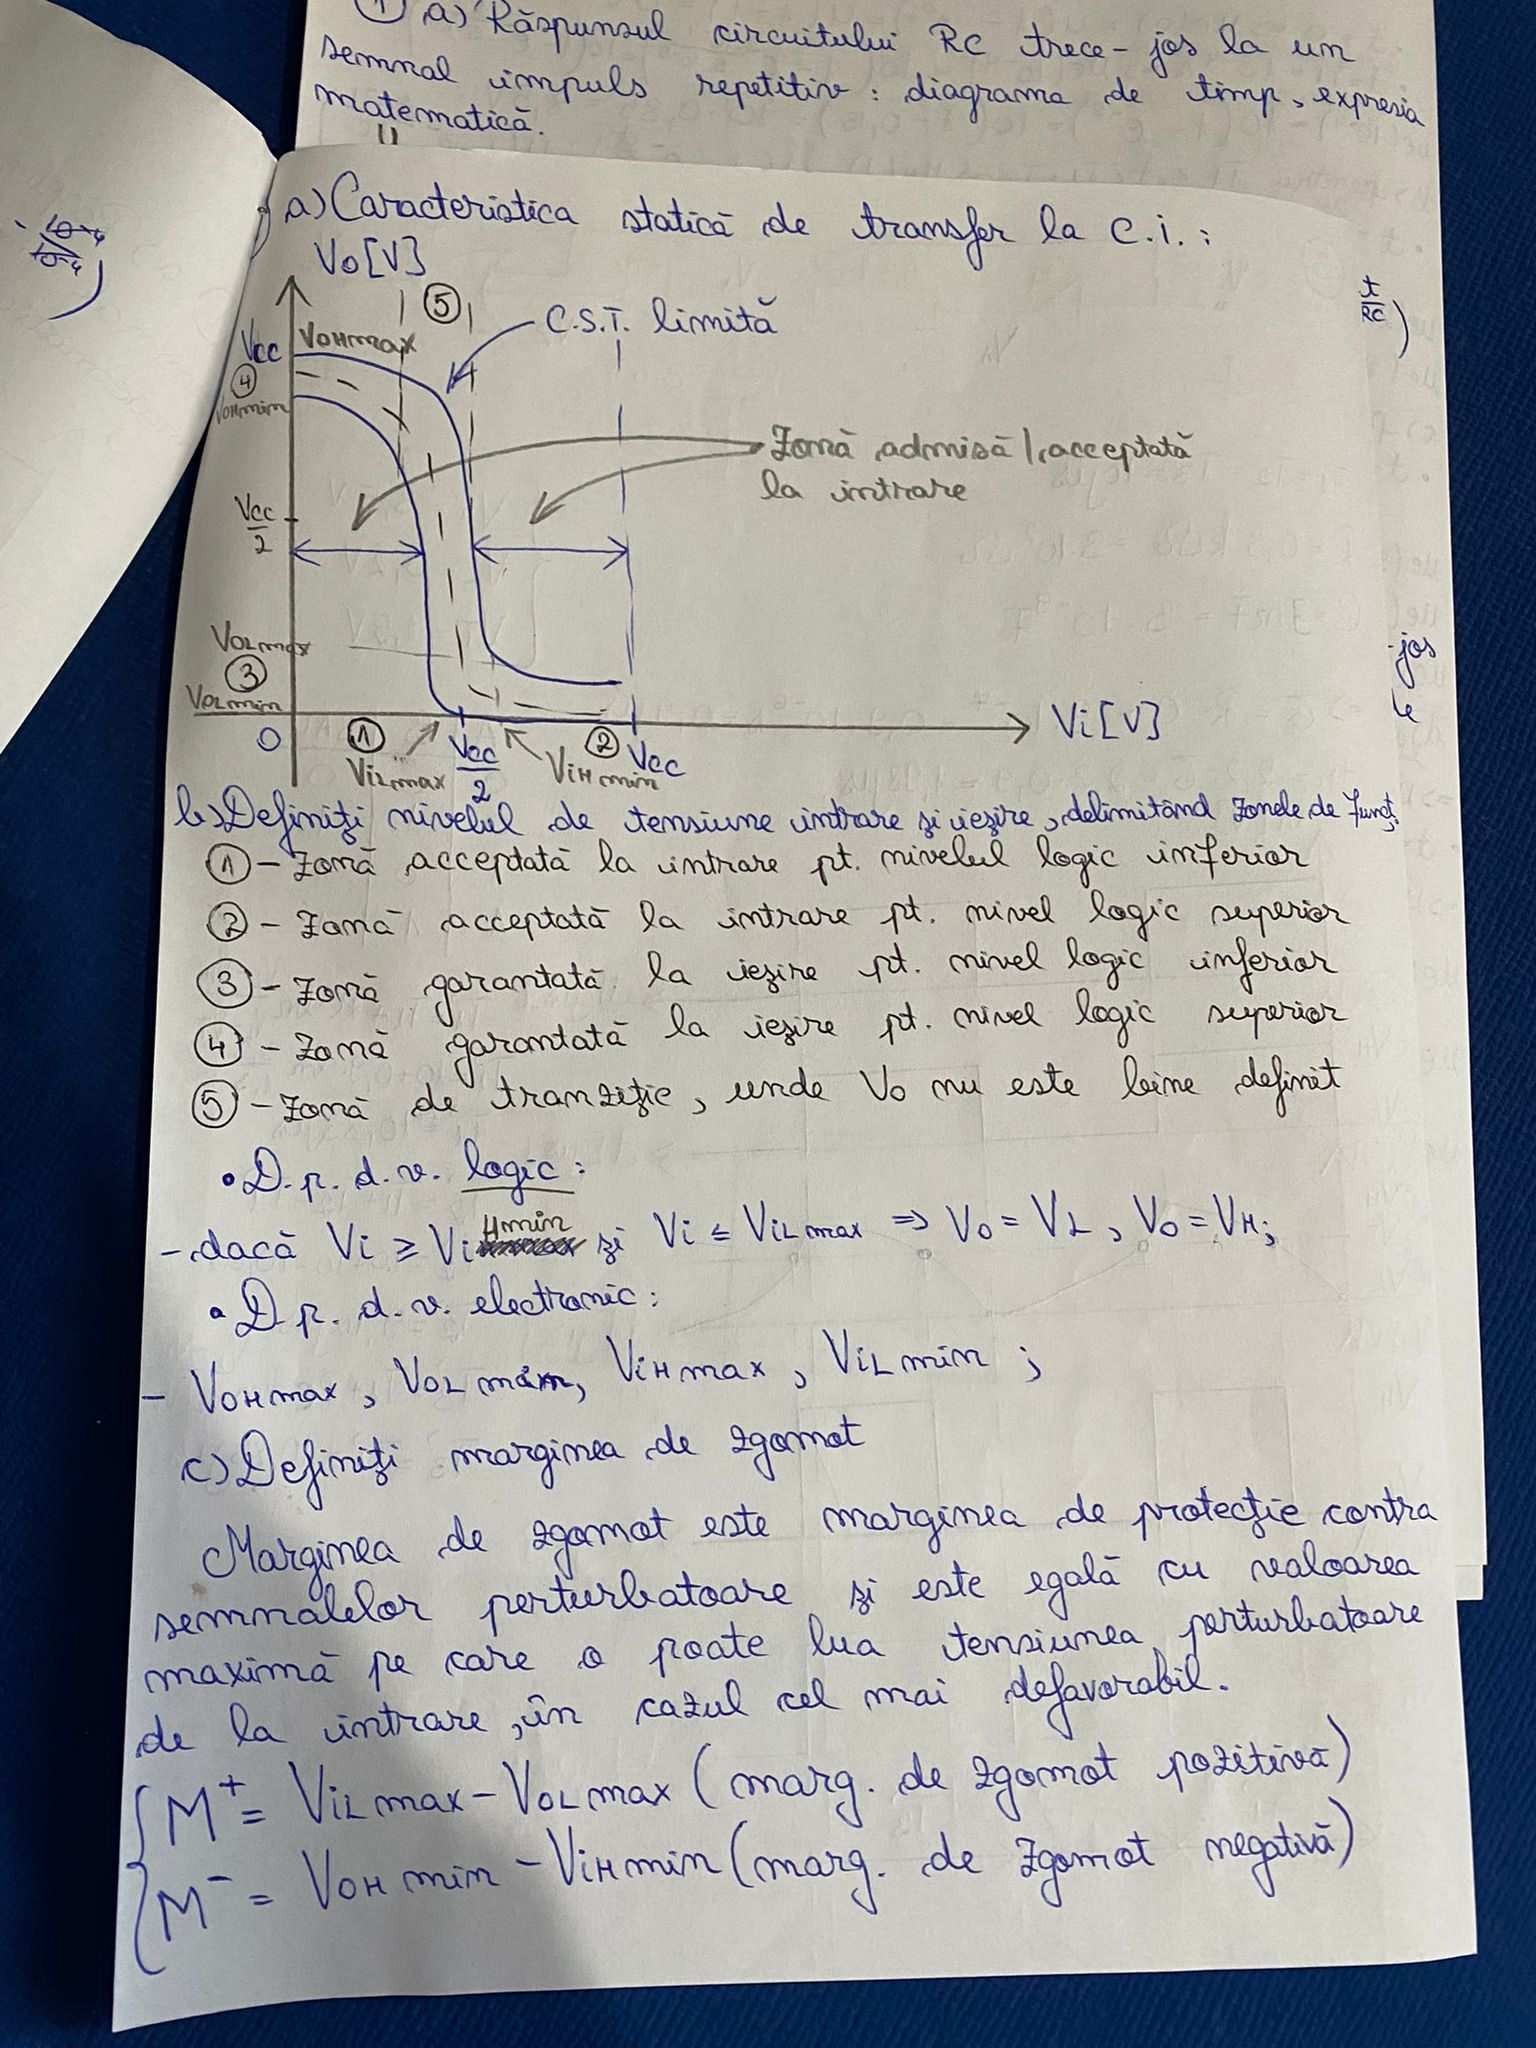 1 a) Răspunsul circuitului RC trece-jos la un
semnal impuls repetitiv: diagrama de timp, expresia
matematică.
a) Caracteristica statică de transfer la c.i.:
Vo[V]
5
C.S.T. limită
t
RC
)
Vcc
VOHmax
4
VOHmin
Zonă admisă/acceptată
la intrare
Vcc
2
VOLmax
3
VOLmin
-jos
0
1
2
Vi[V]
ViLmax
Vcc
2
ViHmin
Vcc
b) Definiți nivelul de tensiune intrare și ieșire, delimitând zonele de funcț.
1 - Zonă acceptată la intrare pt. nivelul logic inferior
2 - Zonă acceptată la intrare pt. nivel logic superior
3 - Zonă garantată la ieșire pt. nivel logic inferior
4 - Zonă garantată la ieșire pt. nivel logic superior
5 - Zonă de tranziție, unde Vo nu este bine definit
• D.p.d.v. logic:
- dacă Vi ≥ ViHmin și Vi ≤ ViLmax ⇒ Vo = VL, Vo = VH;
• D.p.d.v. electronic:
- VOHmax, VOLmin, ViHmax, ViLmin;
c) Definiți marginea de zgomot
Marginea de zgomot este marginea de protecție contra
semnalelor perturbatoare și este egală cu valoarea
maximă pe care o poate lua tensiunea perturbatoare
de la intrare, în cazul cel mai defavorabil.
M⁺ = ViLmax - VOLmax (marg. de zgomot pozitivă)
M⁻ = VOHmin - ViHmin (marg. de zgomot negativă)